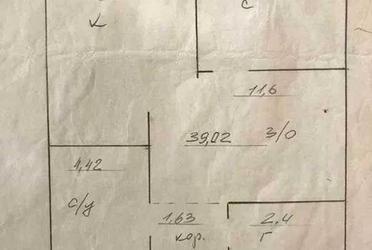 К
С
11,6
39,02 З/О
4,42
С/У
1.63
кор.
2.4
Г